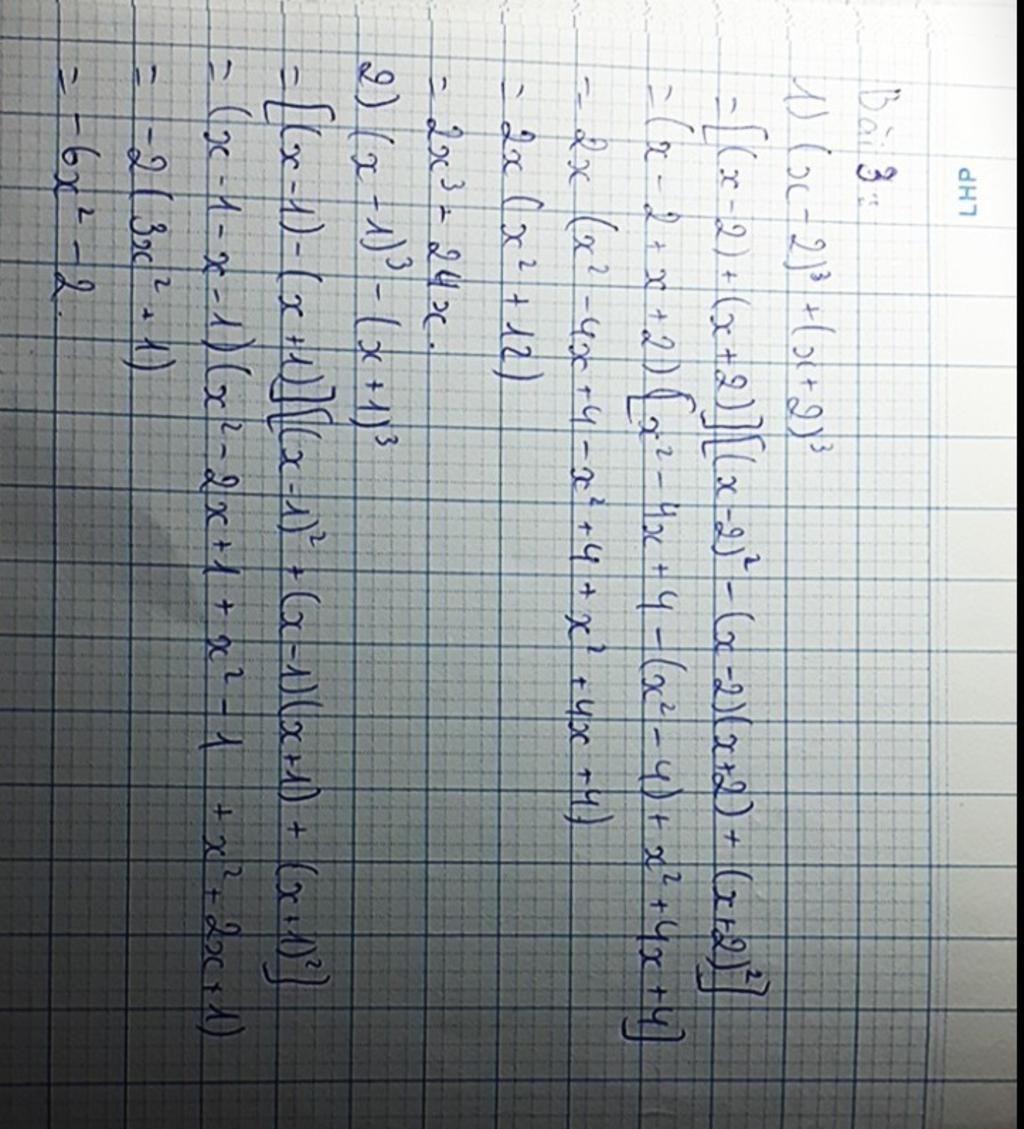 LHP
Bài 3:
1) (x - 2)³ + (x + 2)³
= [(x - 2) + (x + 2)][(x - 2)² - (x - 2)(x + 2) + (x + 2)²]
= (x - 2 + x + 2)[x² - 4x + 4 - (x² - 4) + x² + 4x + 4]
= 2x (x² - 4x + 4 - x² + 4 + x² + 4x + 4)
= 2x (x² + 12)
= 2x³ + 24x.
2) (x - 1)³ - (x + 1)³
= [(x - 1) - (x + 1)][(x - 1)² + (x - 1)(x + 1) + (x + 1)²]
= (x - 1 - x - 1)(x² - 2x + 1 + x² - 1 + x² + 2x + 1)
= -2(3x² + 1)
= -6x² - 2.